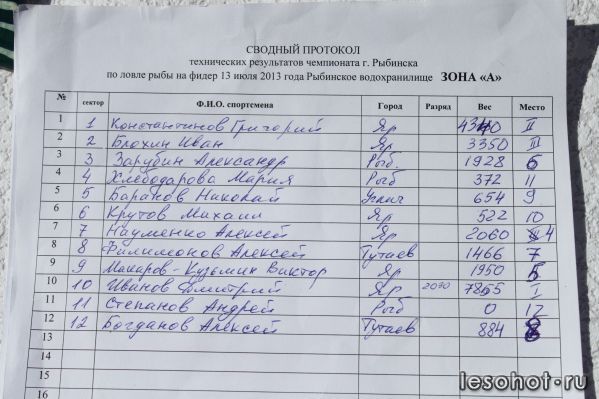 СВОДНЫЙ ПРОТОКОЛ
технических результатов чемпионата г. Рыбинска
по ловле рыбы на фидер 13 июля 2013 года Рыбинское водохранилище ЗОНА «А»
№ сектор Ф.И.О. спортсмена Город Разряд Вес Место
1 1 Константинов Григорий Яр II
2 2 Блохин Иван Яр 3350 III
3 3 Зарубин Александр Рыб. 1928 6
4 4 Хлебодарова Мария Рыб 372 11
5 5 Баранов Николай Углич 654 9
6 6 Крутов Михаил Яр 522 10
7 7 Науменко Алексей Яр 2060 4
8 8 Филимонов Алексей Тутаев 1466 7
9 9 Макаров-Кузьмин Виктор Яр 1950 5
10 10 Иванов Дмитрий Яр I
11 11 Степанов Андрей Рыб 0 12
12 12 Богданов Алексей Тутаев 884 8
13
14
15
16
lesohot.ru